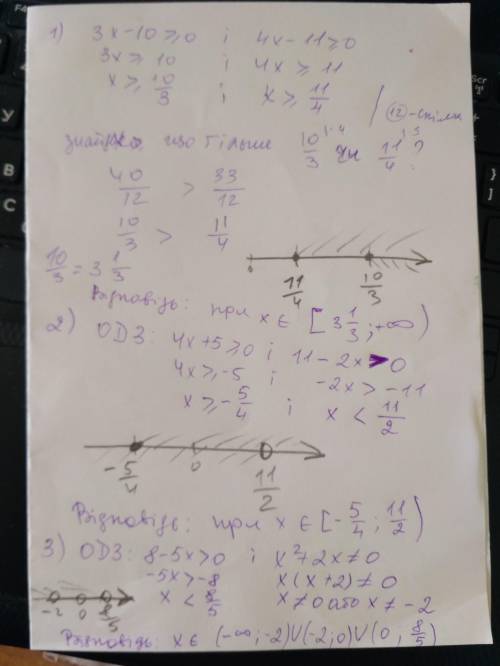 1) 3x-10≥0 і 4x-11≥0
3x≥10 і 4x≥11
x≥10/3 і x≥11/4
(12)-спільн
що більше 10/3 чи 11/4?
40/12 > 33/12
10/3 > 11/4
10/3 = 3 1/3
0 11/4 10/3
Відповідь: при x∈ [3 1/3; +∞)
2) ОДЗ: 4x+5≥0 і 11-2x>0
4x≥-5 і -2x>-11
x≥-5/4 і x<11/2
-5/4 0 11/2
Відповідь: при x∈[-5/4; 11/2)
3) ОДЗ: 8-5x>0 і x²+2x≠0
-5x>-8 x(x+2)≠0
x<8/5 x≠0 або x≠-2
-2 0 8/5
Відповідь: x∈ (-∞;-2)∪(-2;0)∪(0; 8/5)